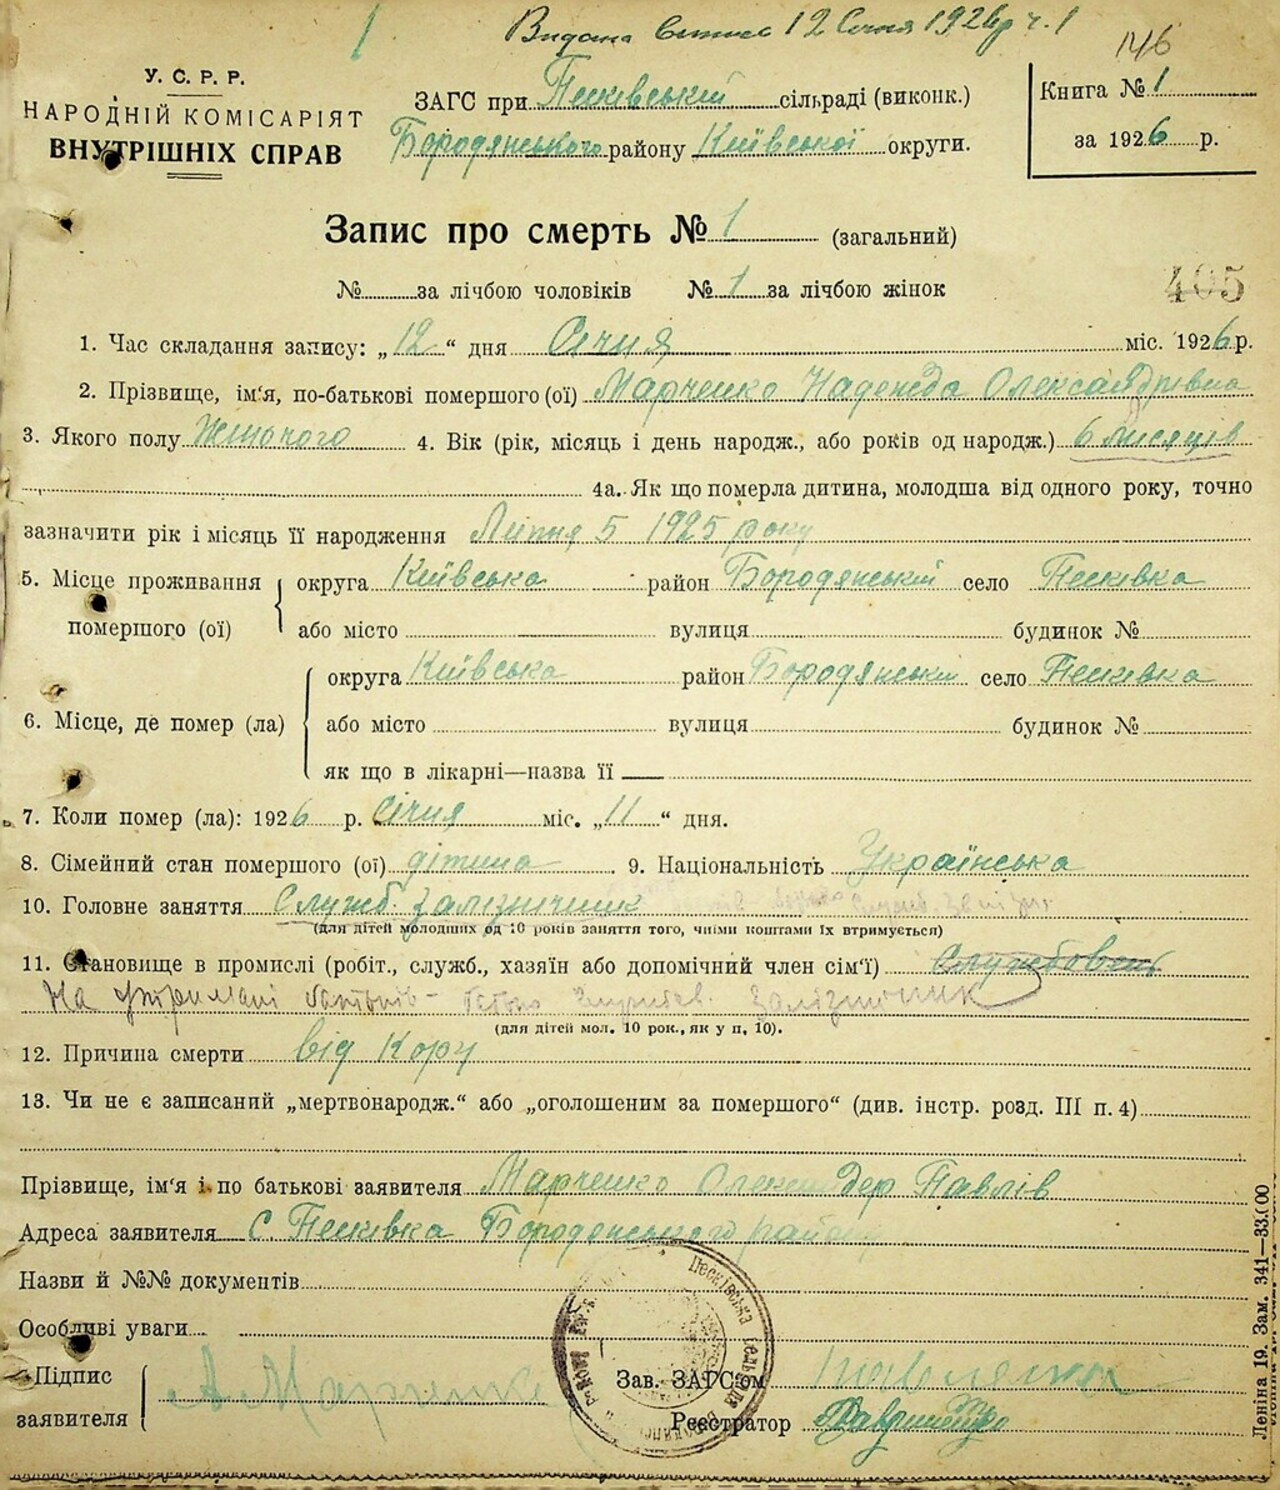 1 Видана витяг 12 Січня 1926 р ч. 1
146
У. С. Р. Р.
НАРОДНІЙ КОМІСАРІЯТ
ВНУТРІШНІХ СПРАВ
ЗАГС при Песківській сільраді (виконк.)
Бородянського району Київської округи.
Книга № 1
за 1926 р.
Запис про смерть № 1 (загальний)
№ за лічбою чоловіків № 1 за лічбою жінок
405
1. Час складання запису: „12“ дня Січня міс. 1926 р.
2. Прізвище, ім‘я, по-батькові помершого (ої) Марченко Надежда Олександрівна
3. Якого полу Жіночого 4. Вік (рік, місяць і день народж., або років од народж.) 6 місяців
4а. Як що померла дитина, молодша від одного року, точно
зазначити рік і місяць її народження Липня 5 1925 року
5. Місце проживання помершого (ої) округа Київська район Бородянський село Песківка
або місто вулиця будинок №
6. Місце, де помер (ла) округа Київська район Бородянський село Песківка
або місто вулиця будинок №
як що в лікарні—назва її
7. Коли помер (ла): 1926 р. Січня міс. „11“ дня.
8. Сімейний стан помершого (ої) дітина 9. Національність Українська
10. Головне заняття Служб. залізничник
(для дітей молодших од 10 років заняття того, чиїми коштами їх втримується)
11. Становище в промислі (робіт., служб., хазяїн або допомічний член сім‘ї) Службовець
На утримані батьків - батько службов. залізничник
(для дітей мол. 10 рок., як у п. 10).
12. Причина смерти від Кору
13. Чи не є записаний „мертвонародж.“ або „оголошеним за помершого“ (див. інстр. розд. III п. 4)
Прізвище, ім‘я і по батькові заявителя Марченко Олександер Павлів
Адреса заявителя С. Песківка Бородянського району
Назви й №№ документів
Особливі уваги
Підпис заявителя А. Марченко
Зав. ЗАГС‘ом
Реєстратор
Песківська сільрада
Леніна 19. Зам. 341—33.000